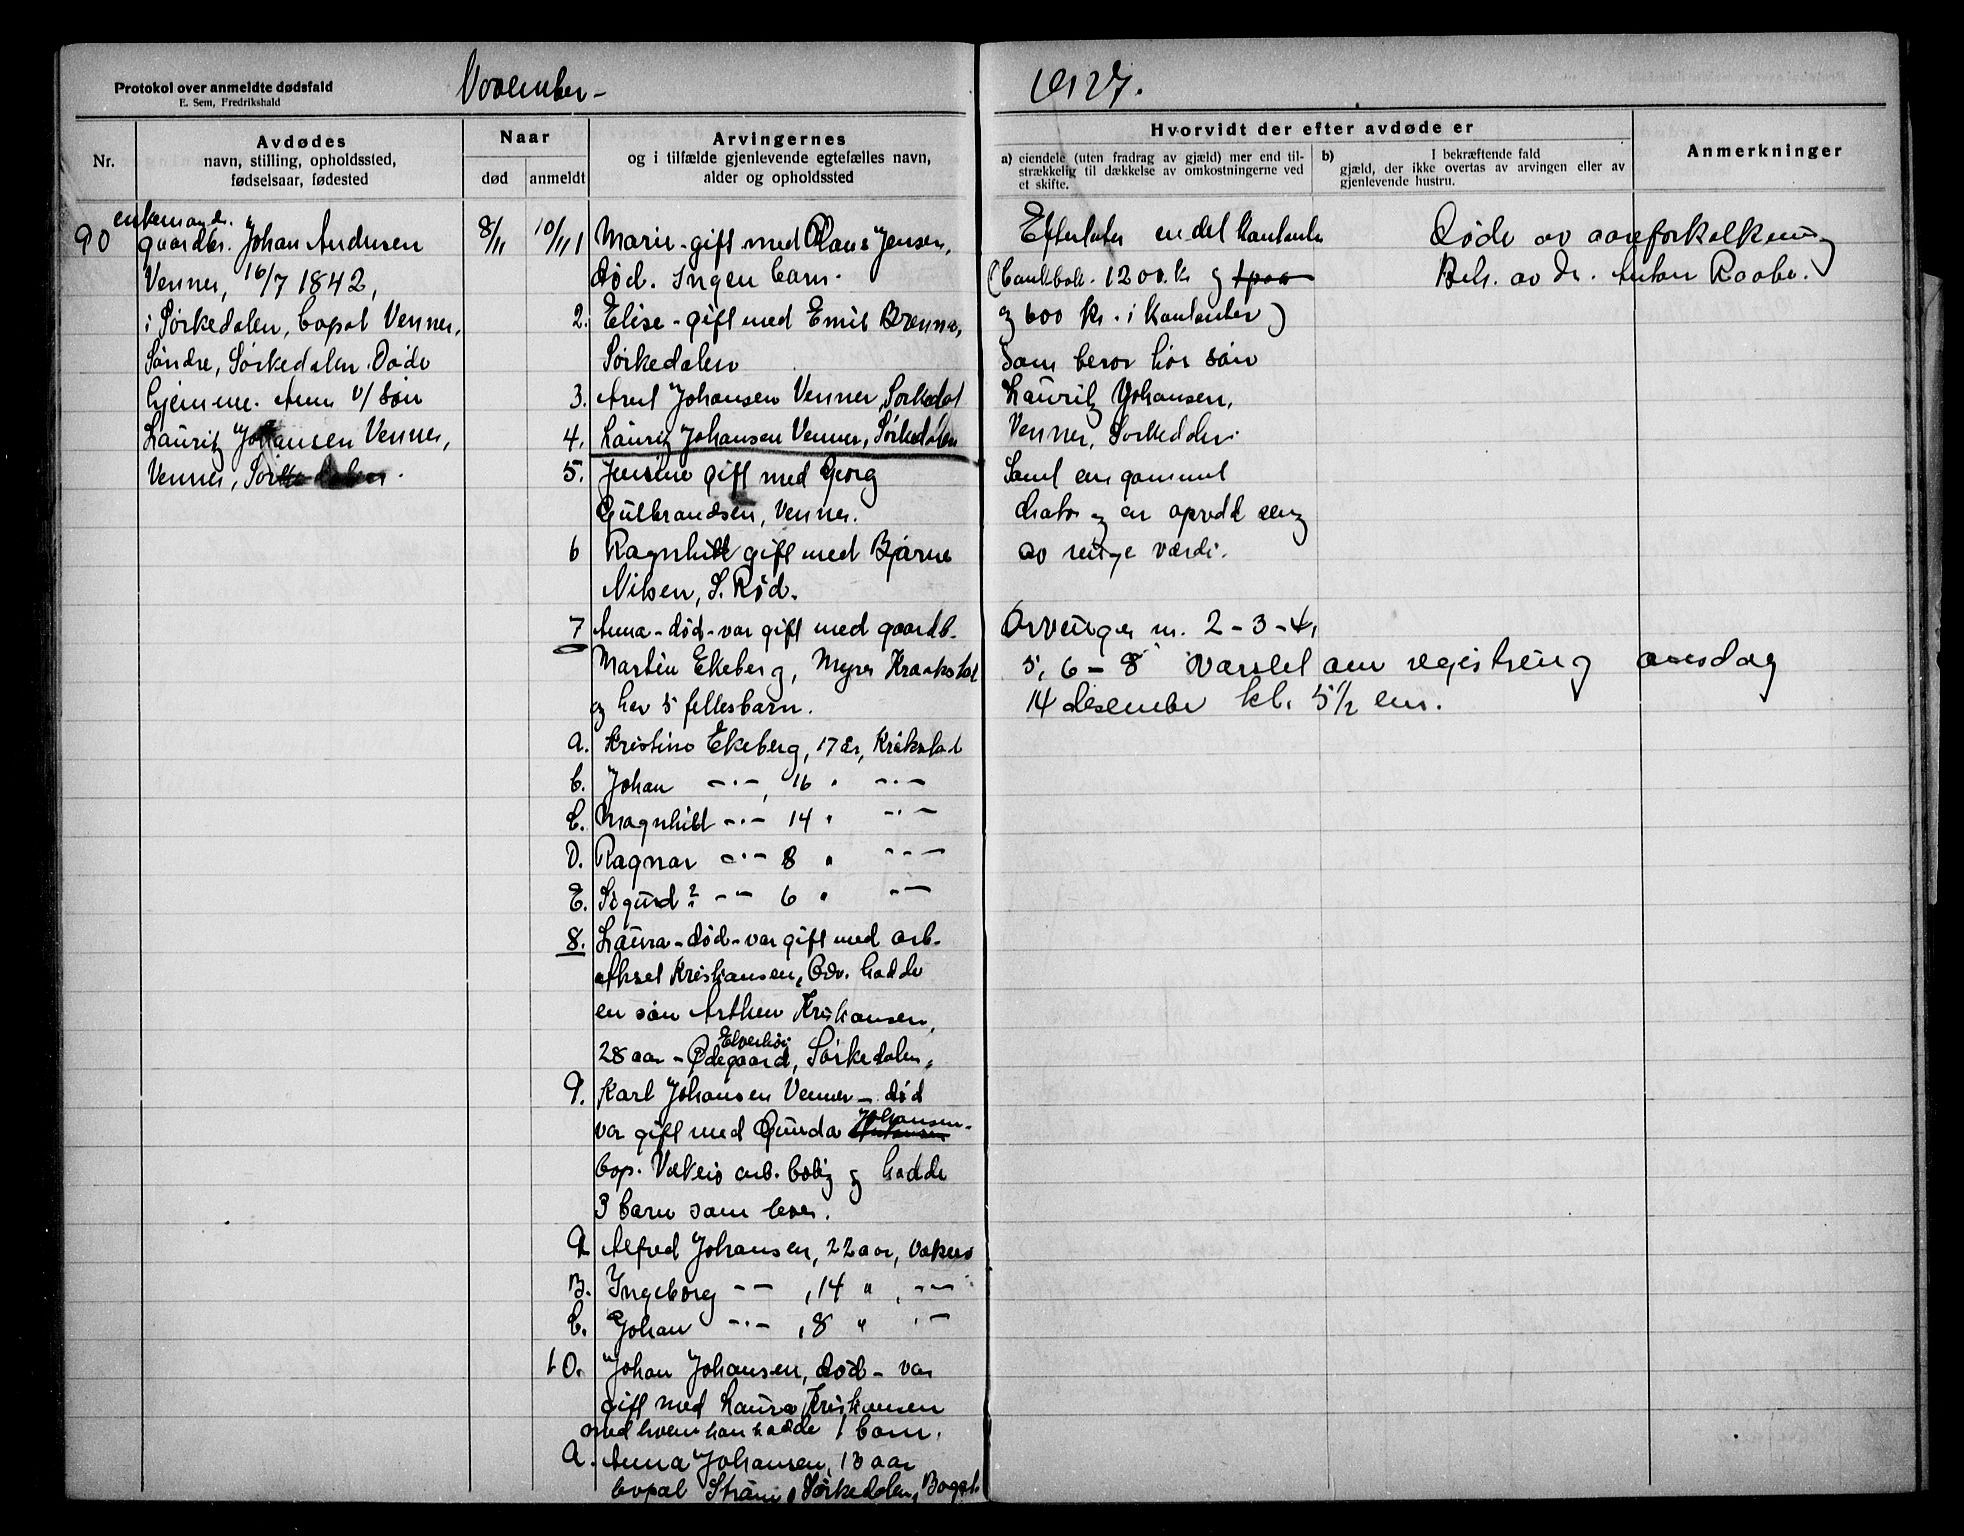 Protokol over anmeldte dødsfald
E. Sem, Fredrikshald
November - 1927.
Nr.
Avdødes
navn, stilling, opholdssted,
fødselsaar, fødested
Naar
død
anmeldt
Arvingernes
og i tilfælde gjenlevende egtefælles navn,
alder og opholdssted
Hvorvidt der efter avdøde er
a) eiendele (uten fradrag av gjæld) mer end til-
strækkelig til dækkelse av omkostningerne ved
et skifte.
b) I bekræftende fald
gjæld, der ikke overtas av arvingen eller av
gjenlevende hustru.
Anmerkninger
90
enkemand.
gaardbr. Johan Andersen
Venner, 16/7 1842,
i Sørkedalen, bopæl Venner,
Søndre, Sørkedalen. Døde
hjemme. Anm. v/ søn
Lauritz Johansen Venner,
Venner, Sørkedalen.
8/11
10/11
1 Marie - gift med Claus Jensen,
død. Ingen barn.
2. Elise - gift med Emil Brenna,
Sørkedalen
3. Axel Johansen Venner, Sørkedal
4. Lauritz Johansen Venner, Sørkedalen
5. Jensine gift med Georg
Gulbrandsen, Venner.
6 Ragnhild gift med Bjarne
Nilsen, S. Rød.
7 Anna - død - var gift med gaardb.
Martin Ekeberg, Myrer Kraakstad
og har 5 fellesbarn.
a. Kristine Ekeberg, 17 år, Kråkstad
b. Johan -·-, 16 " -·-
C. Magnhild -·- 14 " -·-
D. Ragnar -·- 8 " -·-
E. Sigurd? -- 6 " -·-
8. Laura - død - var gift med arb.
Aksel Kristiansen, hadde
en søn Arthur Kristiansen,
28 aar - Ødegaard, Elverhøi Sørkedalen.
9. Karl Johansen Venner - død
var gift med Gunda Johansen.
bop. Vækerø arb. bolig og hadde
3 barn som lever.
a Alfred Johansen, 22 aar, Vækerø
B. Ingeborg -- , 14 " , -·-
C. Johan -·- , 8 " -·-
10. Johan Johansen, død - var
gift med Laura Kristiansen
med hvem han hadde 1 barn.
a. Anna Johansen, 13 aar
bopæl Sørkedalen, Bogst.
Efterlater en del kontanter
(bankbok. 1200. kr og
og 600 kr. i kontanter)
som beror hos søn
Lauritz Johansen,
Venner, Sørkedalen.
Samt en gammel
og en opredd seng
av ringe værdi.
Arvinger nr. 2 - 3 - 4,
5, 6 - 8 varslet om registrering onsdag
14 desember kl. 5 1/2 em.
Døde av aareforkalkning
Beh. av dr. Anton Raabe.